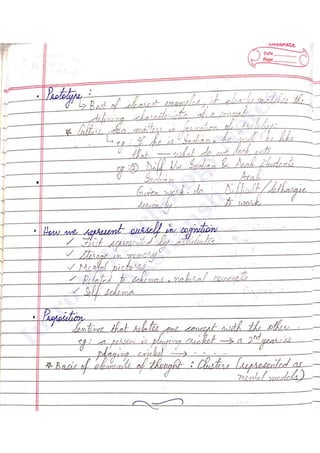 CLASSMATE
Date
Page
• Prototype :
↳ Best of clearest examples, it clearly matches the
defining characteristics of a concept.
* Culture also matters in formation of
↳ eg: If he is Indian, he must be like
that — what do we look into
eg: ② Diff b/w Indian & Arab students
Indian Arab
Given work: do Difficult / lethargic
seriously to work
• How we represent ourself in cognition
✓ First represented by
✓ Storage in memory
✓ Mental pictures
✓ Related to schemas, natural concepts
✓ Self schema
• Preposition
Sentence that relates one concept with the other.
eg: a person is playing cricket → a 2nd year is
playing cricket → . . . . .
* Basis of elements of thought : Clusters (represented as
mental models)